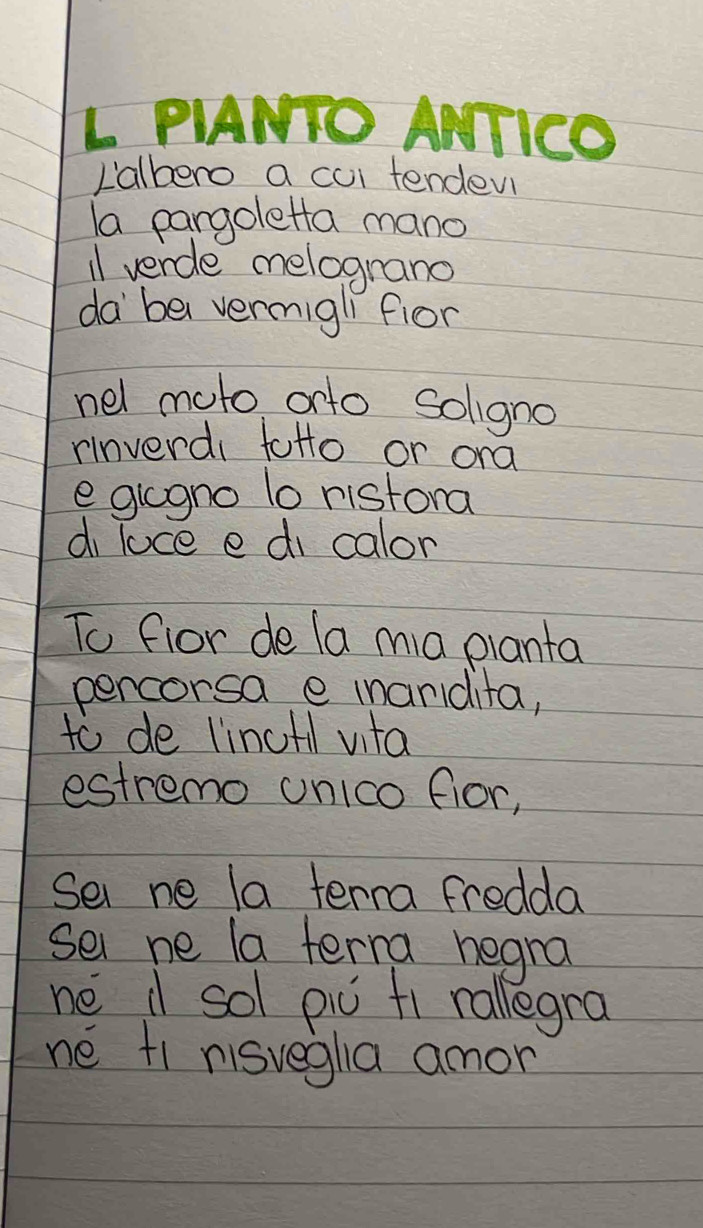 L PIANTO ANTICO
L'albero a cui tendevi
la pargoletta mano
il verde melograno
da' bei vermigli fior
nel muto orto soligno
rinverdi tutto or ora
e giugno lo ristora
di luce e di calor
Tu fior de la mia pianta
percorsa e inaridita,
tu de l'inutil vita
estremo unico fior,
Sei ne la terra fredda
Sei ne la terra negra
né il sol più ti rallegra
né ti risveglia amor